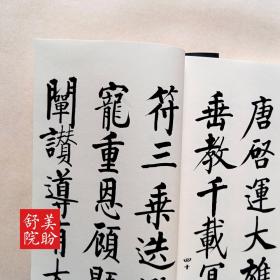 唐啓運大雄
垂教千載冥
符三乘迭
寵重恩顧
闡讃導用
四十
美盼
舒院